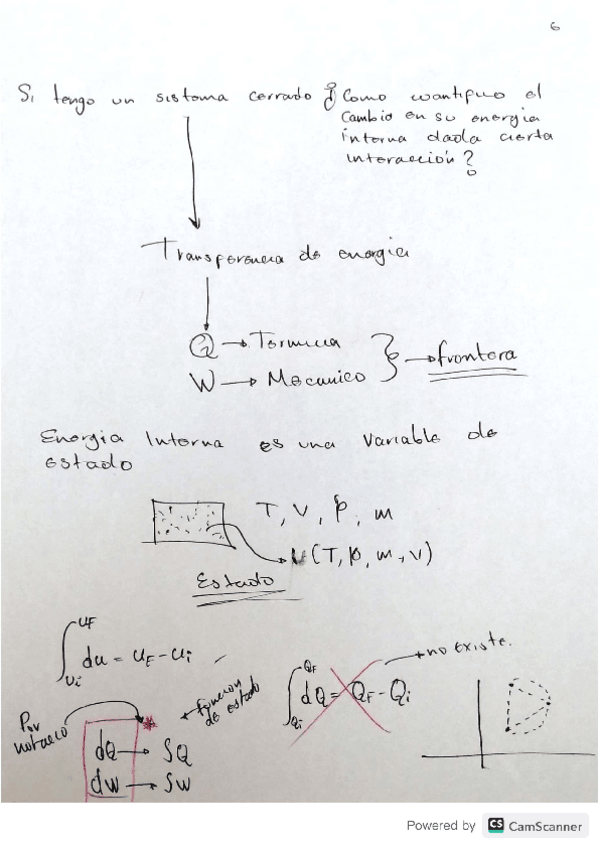 6
Si tengo un sistema cerrado ¿Como cuantifico el
cambio en su energia
interna dada cierta
interacción?
Transferencia de energia
Q → Termica
W → Mecanico } → frontera
Energia Interna es una variable de
estado
T, V, P, m
U(T, p, m, v)
Estado
∫_{Ui}^{UF} du = UF - Ui
∫_{Qi}^{QF} dQ = QF - Qi
no existe.
Por
* función
de estado
dQ → δQ
dW → δW
Powered by CS CamScanner